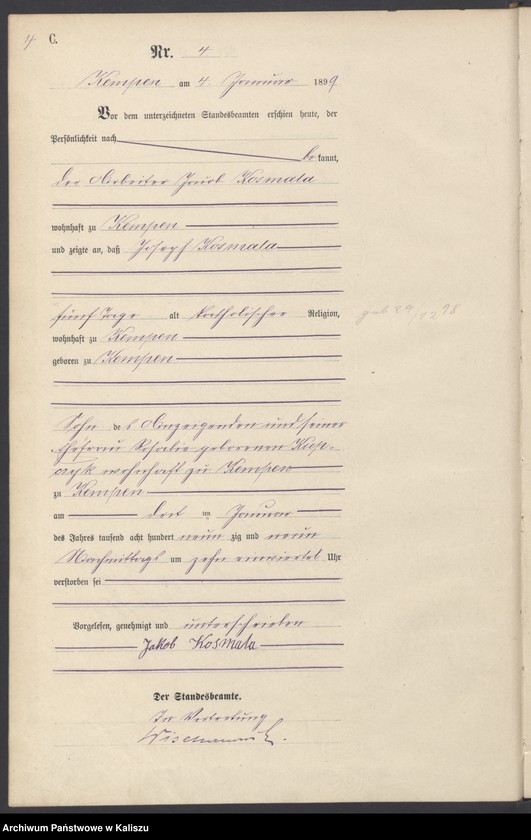 4 C.
Nr. 4
Kempen am 4. Januar 1899
Vor dem unterzeichneten Standesbeamten erschien heute, der
Persönlichkeit nach
be kannt,
der Arbeiter Jacob Kosmala
wohnhaft zu Kempen
und zeigte an, daß Joseph Kosmala
fünf Tage alt katholischer Religion,
geb 29/12 98
wohnhaft zu Kempen
geboren zu Kempen
Sohn des Anzeigenden und seiner
Ehefrau Rosalie geborenen
wohnhaft zu Kempen
zu Kempen
am Januar
des Jahres tausend acht hundert neun zig und neun
Nachmittags um zehn einviertel Uhr
verstorben sei
Vorgelesen, genehmigt und unterschrieben
Jakob Kosmala
Der Standesbeamte.
In Vertretung
Archiwum Państwowe w Kaliszu